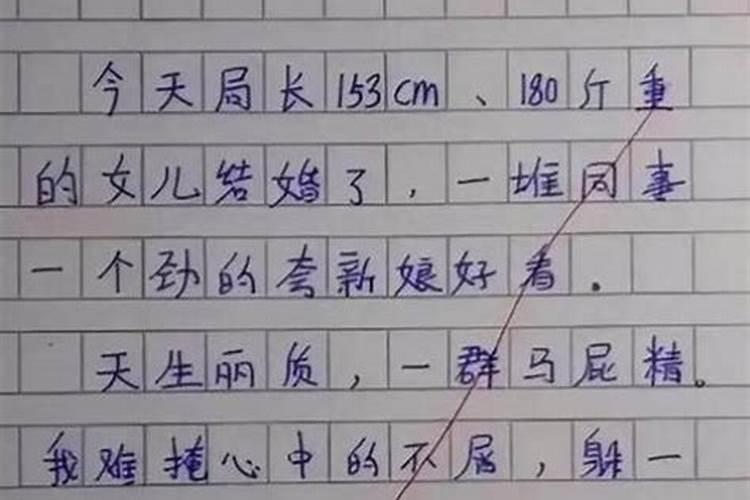 今天局长153cm、180斤重
的女儿结婚了，一堆同事
一个劲的夸新娘好看.
天生丽质，一群马屁精。
我难掩心中的不屑，躲一